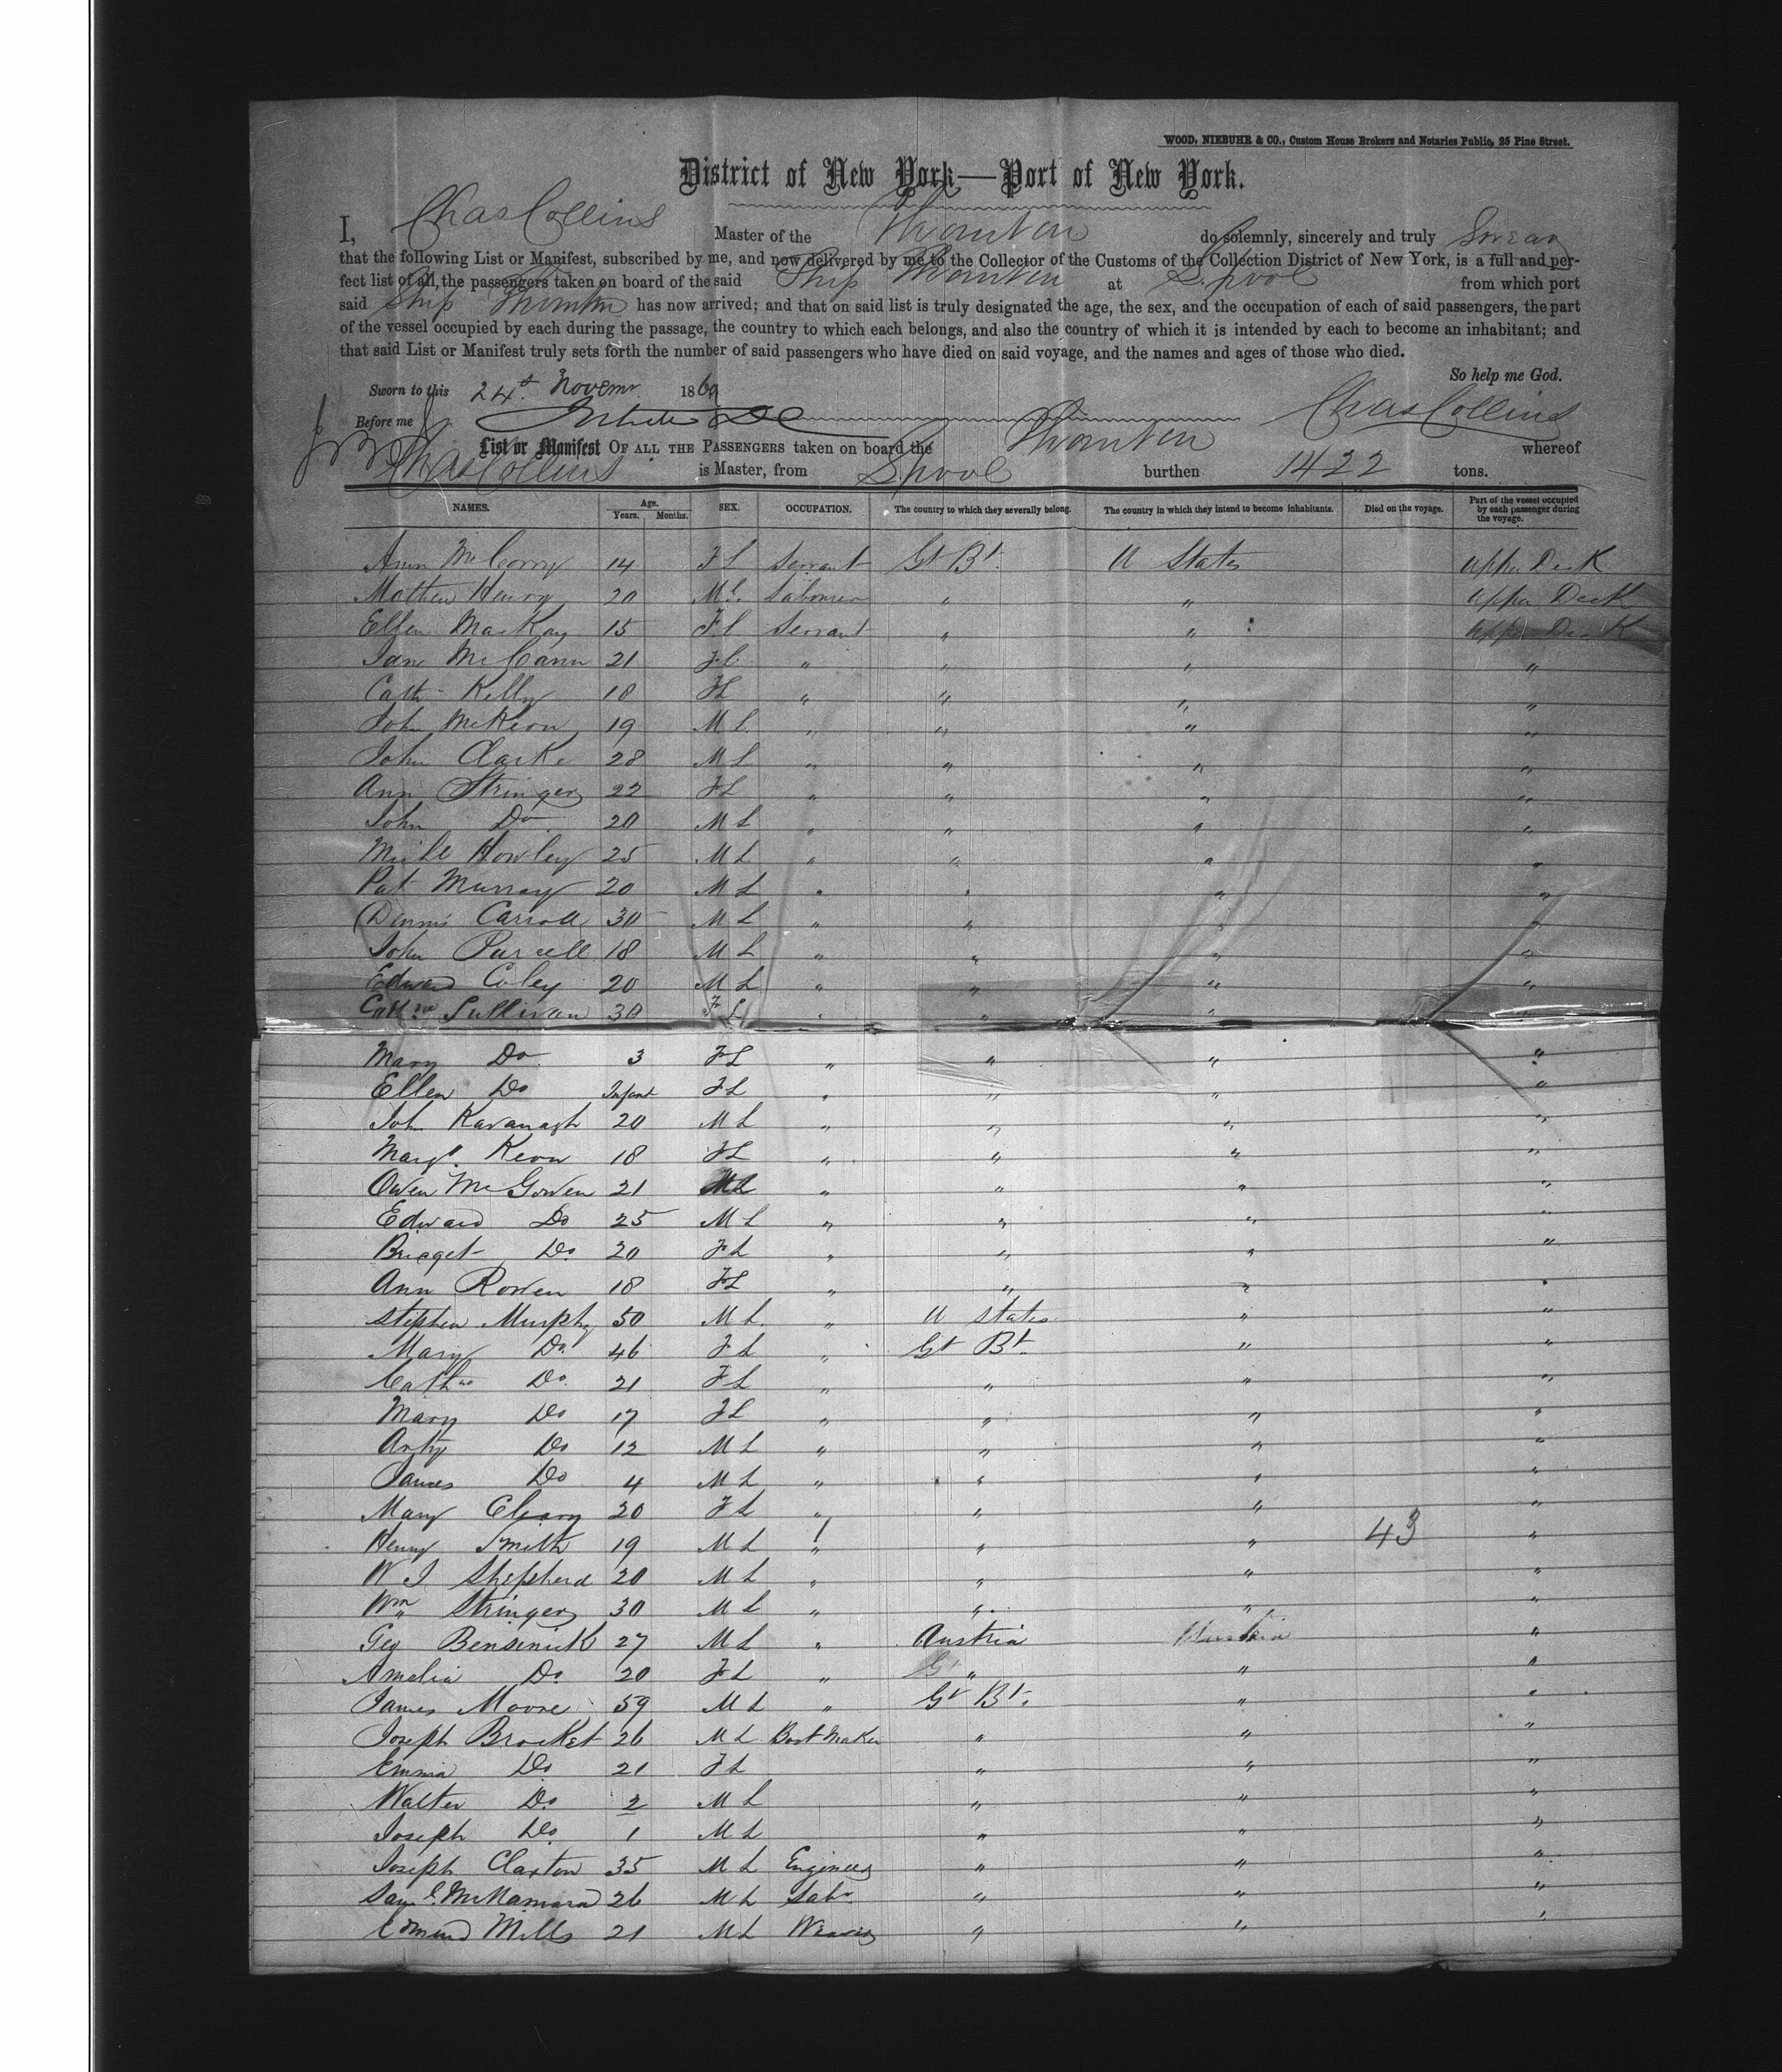 WOOD, NIEBUHR & CO., Custom House Brokers and Notaries Public, 25 Pine Street.
District of New York—Port of New York.
I, Chas Collins Master of the Thornton do solemnly, sincerely and truly Swear
that the following List or Manifest, subscribed by me, and now delivered by me to the Collector of the Customs of the Collection District of New York, is a full and per-
fect list of all, the passengers taken on board of the said Ship Thornton at L.pool from which port
said Ship Thornton has now arrived; and that on said list is truly designated the age, the sex, and the occupation of each of said passengers, the part
of the vessel occupied by each during the passage, the country to which each belongs, and also the country of which it is intended by each to become an inhabitant; and
that said List or Manifest truly sets forth the number of said passengers who have died on said voyage, and the names and ages of those who died.
So help me God.
Sworn to this 24th Novemr 1869
Before me Chas Collins
List or Manifest OF ALL THE PASSENGERS taken on board the Thornton whereof
Chas Collins is Master, from Lpool burthen 1422 tons.
NAMES. Age. Years. Months. SEX. OCCUPATION. The country to which they severally belong. The country in which they intend to become inhabitants. Died on the voyage. Part of the vessel occupied by each passenger during the voyage.
Ann McCorry 14 FL Servant Gt Bt. U States Upper Deck
Mathew Henry 20 ML. Labourer " " Upper Deck
Ellen MacKay 15 FL Servant " " Upper Deck
Jane McCann 21 FL " " " "
Cath Kelly 18 FL " " " "
John McKeon 19 ML " " " "
John Clarke 28 ML " " " "
Ann Stringer 22 FL " " " "
John Do 20 ML " " " "
Michl Howley 25 ML " " " "
Pat Murray 20 ML " " " "
Dennis Carroll 30 ML " " " "
John Purcell 18 ML " " " "
Edward Coley 20 ML " " " "
Cathne Sullivan 30 FL " " " "
Mary Do 3 FL " " " "
Ellen Do Infant FL " " " "
John Kavanagh 20 ML " " " "
Margt. Keon 18 FL " " " "
Owen McGowen 21 ML " " " "
Edward Do 25 ML " " " "
Bridget Do 20 FL " " " "
Ann Rowen 18 FL " " " "
Stephen Murphy 50 ML. " U States " "
Mary Do. 46 FL " Gt Bt. " "
Cathne Do. 21 FL " " " "
Mary Do 17 FL " " " "
Anty Do 12 ML " " " "
James Do 4 ML " " " "
Mary Cleary 20 FL " " " "
Henry Smith 19 ML " " " 43 "
W J Shepherd 20 ML " " " "
Wm Stringer 30 ML " " " "
Geo Bensinick 27 ML " Austria Austria "
Amelia Do. 20 FL " " " "
James Moore 59 ML " Gt Bt. " "
Joseph Brocket 26 ML Boot Maker " " "
Emma Do 21 FL " " "
Walter Do. 2 ML " " "
Joseph Do 1 ML " " "
Joseph Claxton 35 ML Engineer " " "
Saml. McNamara 26 ML Labr. " " "
Edmund Mills 21 ML Weaver " " "